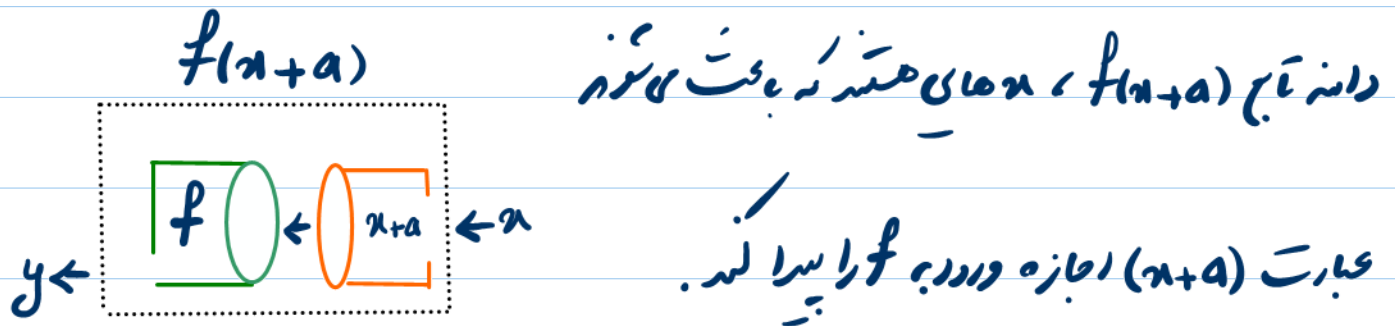 f(x+a)
دامنه تابع f(x+a) ، xهای هستند که باعث می شوند
f
x+a
←x
y←
عبارت (x+a) اجازه ورود به f را پیدا کند.